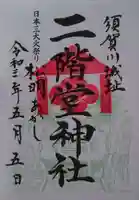 須賀川城址
日本三大火祭り
松明あかし
二階堂神社
令和三年五月五日